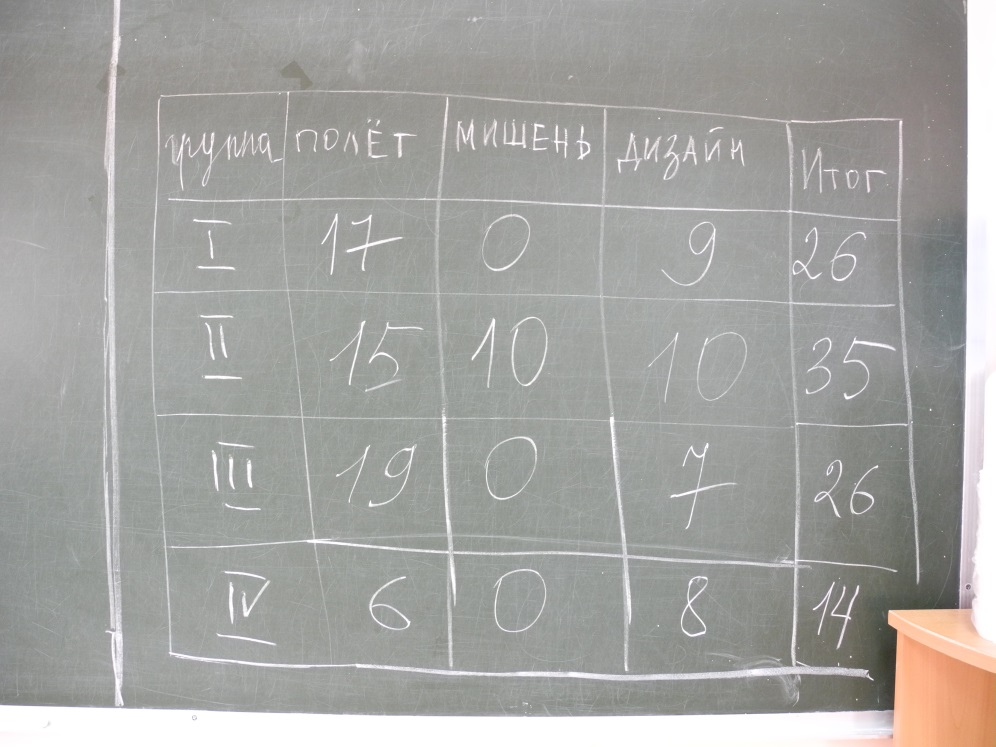 группа ПОЛЁТ МИШЕНЬ ДИЗАЙН Итог
I 17 0 9 26
II 15 10 10 35
III 19 0 7 26
IV 6 0 8 14